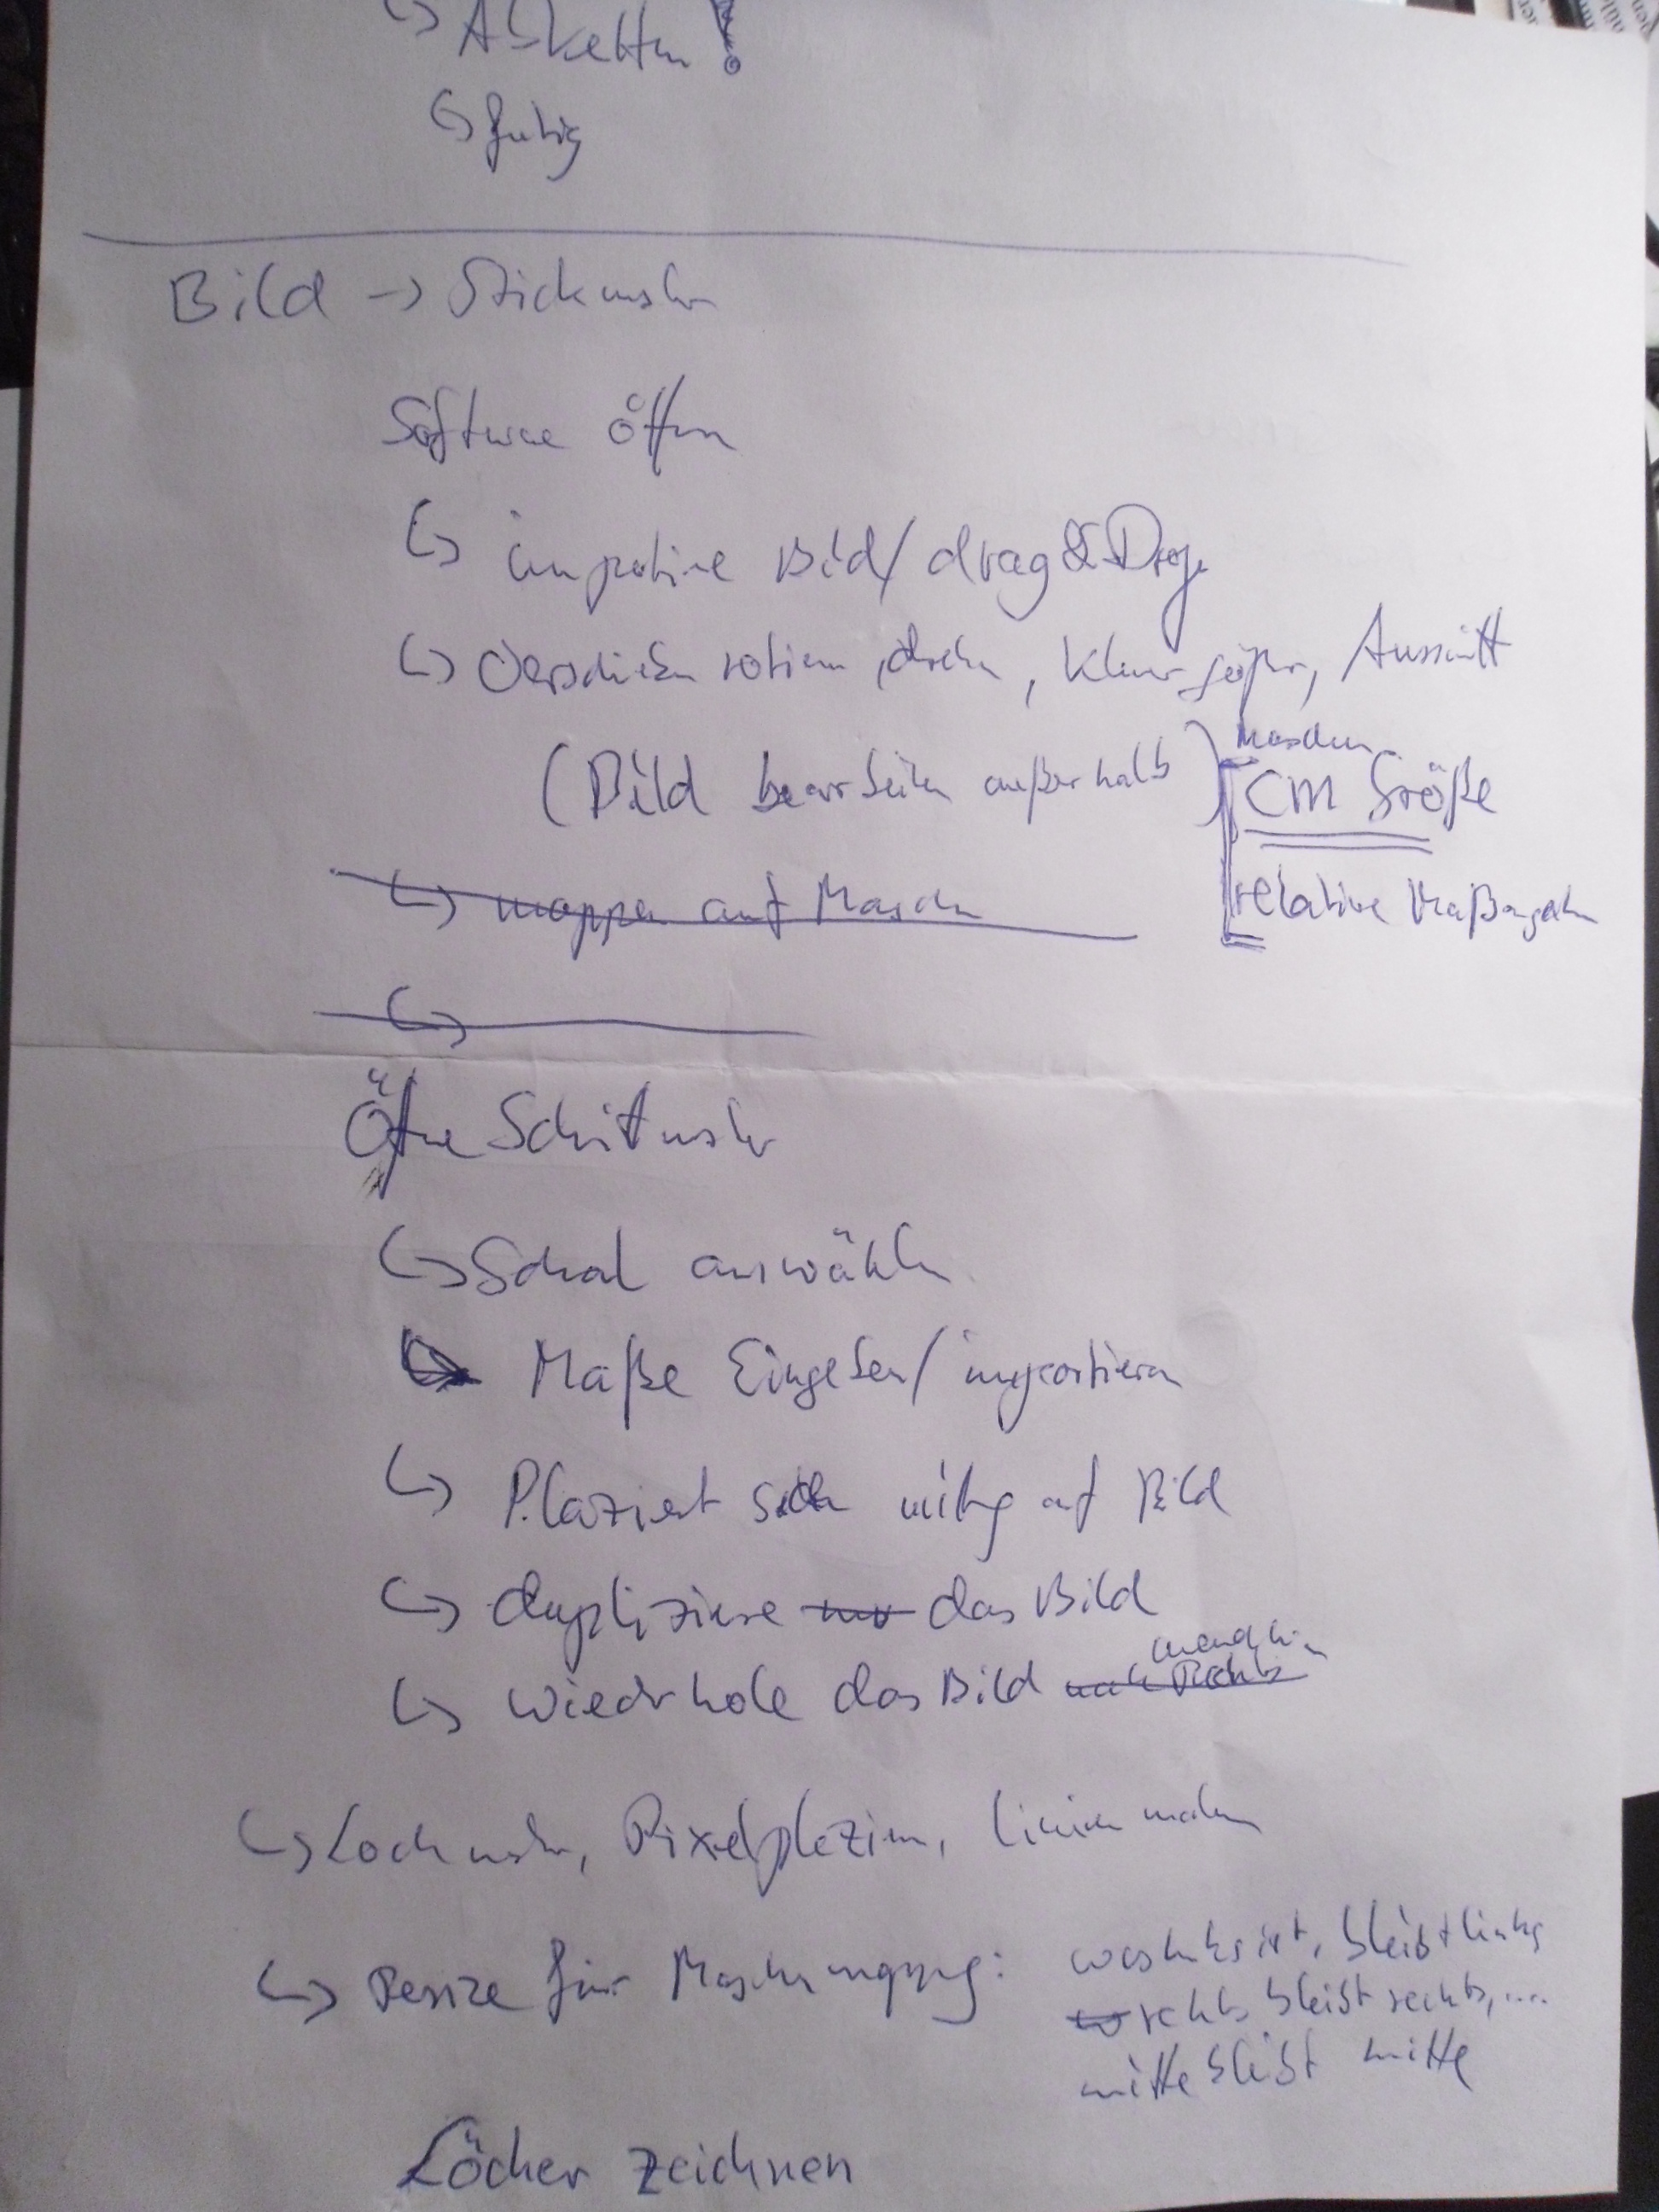 ↳ Abketten!
↳ fertig
Bild → Strickmuster
Software öffnen
↳ importiere Bild/drag & Drop
↳ Verschieben rotieren, drehen, kleiner größer, Ausschnitt
(Bild bearbeiten außerhalb)
Maschen
CM Größe
relative Maßangaben
↳ mappen auf Maschen
↳
Öffne Schnittmuster
↳ Schal auswählen
↳ Maße Eingeben/importieren
↳ Plaziert sich mittig auf Bild
↳ dupliziere das Bild
↳ wiederhole das Bild nach Rechts
unendlich
↳ Lochmuster, Pixelplazieren, linien malen
↳ Resize für Maschenanpassung:
was links ist, bleibt links
rechts bleibt rechts, ...
mitte bleibt mitte
Löcher zeichnen